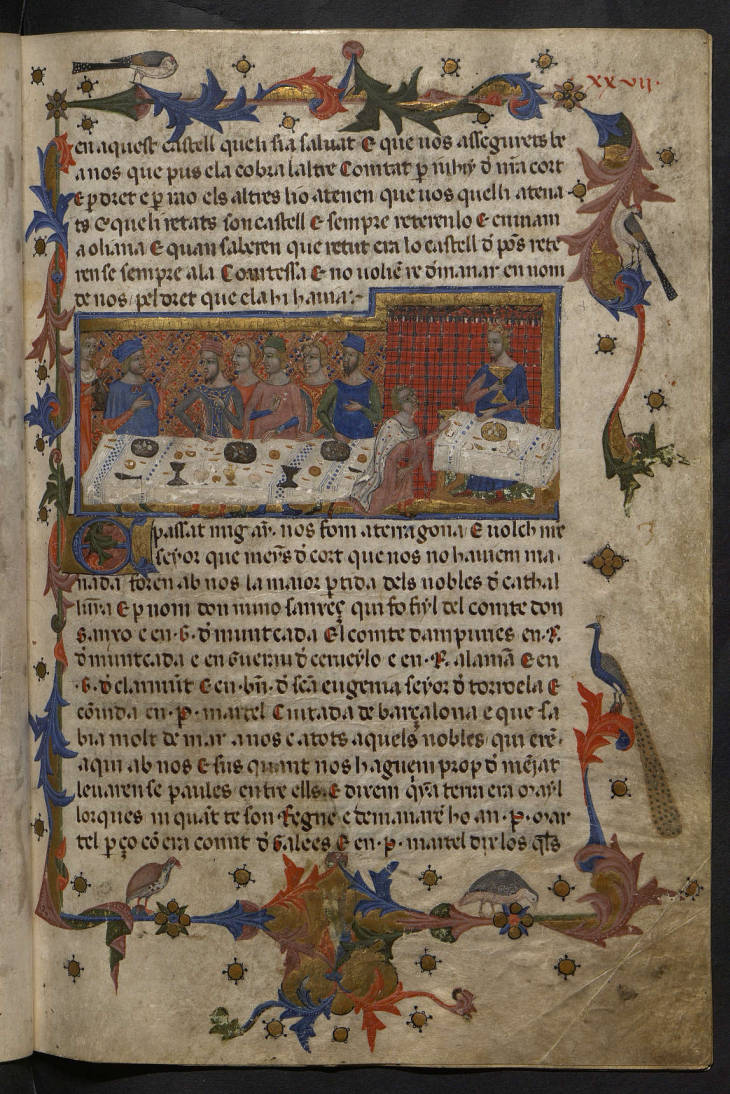 xxvij.
en aquest castell queli sia saluat E que uos assegurets be
a nos que pus ela cobra laltre Comtat p iuhiy d nra cort
E p dret e p rao els altres ho atenen que uos quelli atena
ts E que li retats son castell E sempre reteren lo E enuiam
a oliana E quan saberen que retut era lo castell d pons rete
ren se sempre ala Comtessa E no uoliere dmanar en nom
de nos pel dret que ela hi hauia
E passat mig an nos fom a terragona E uolch nre
seyor que meys d cort que nos no hauiem ma
nada foren ab nos la maior ptida dels nobles d cathal
E p nom don nuno sanxeç qui fo fiyl del comte don
Sanxo e en .G. d muntcada El comte dampuries en .R.
d muntcada e en Guerau d cerueylo e en .R. alama E en
.G. d claramut E en .bn. d sca eugenia seyor d torroela E
en .P. martel Ciutada de barçalona e que sa
bia molt de mar a nos e a tots aquels nobles qui eren
aqui ab nos E sus quant nos haguem prop d menjat
leuaren se paules entre ells E direm qna terra era mayl
lorques in quat te son Regne e demanare ho an .P. mar
tel p ço co era comit d Galees E en .P. martel dix los qls